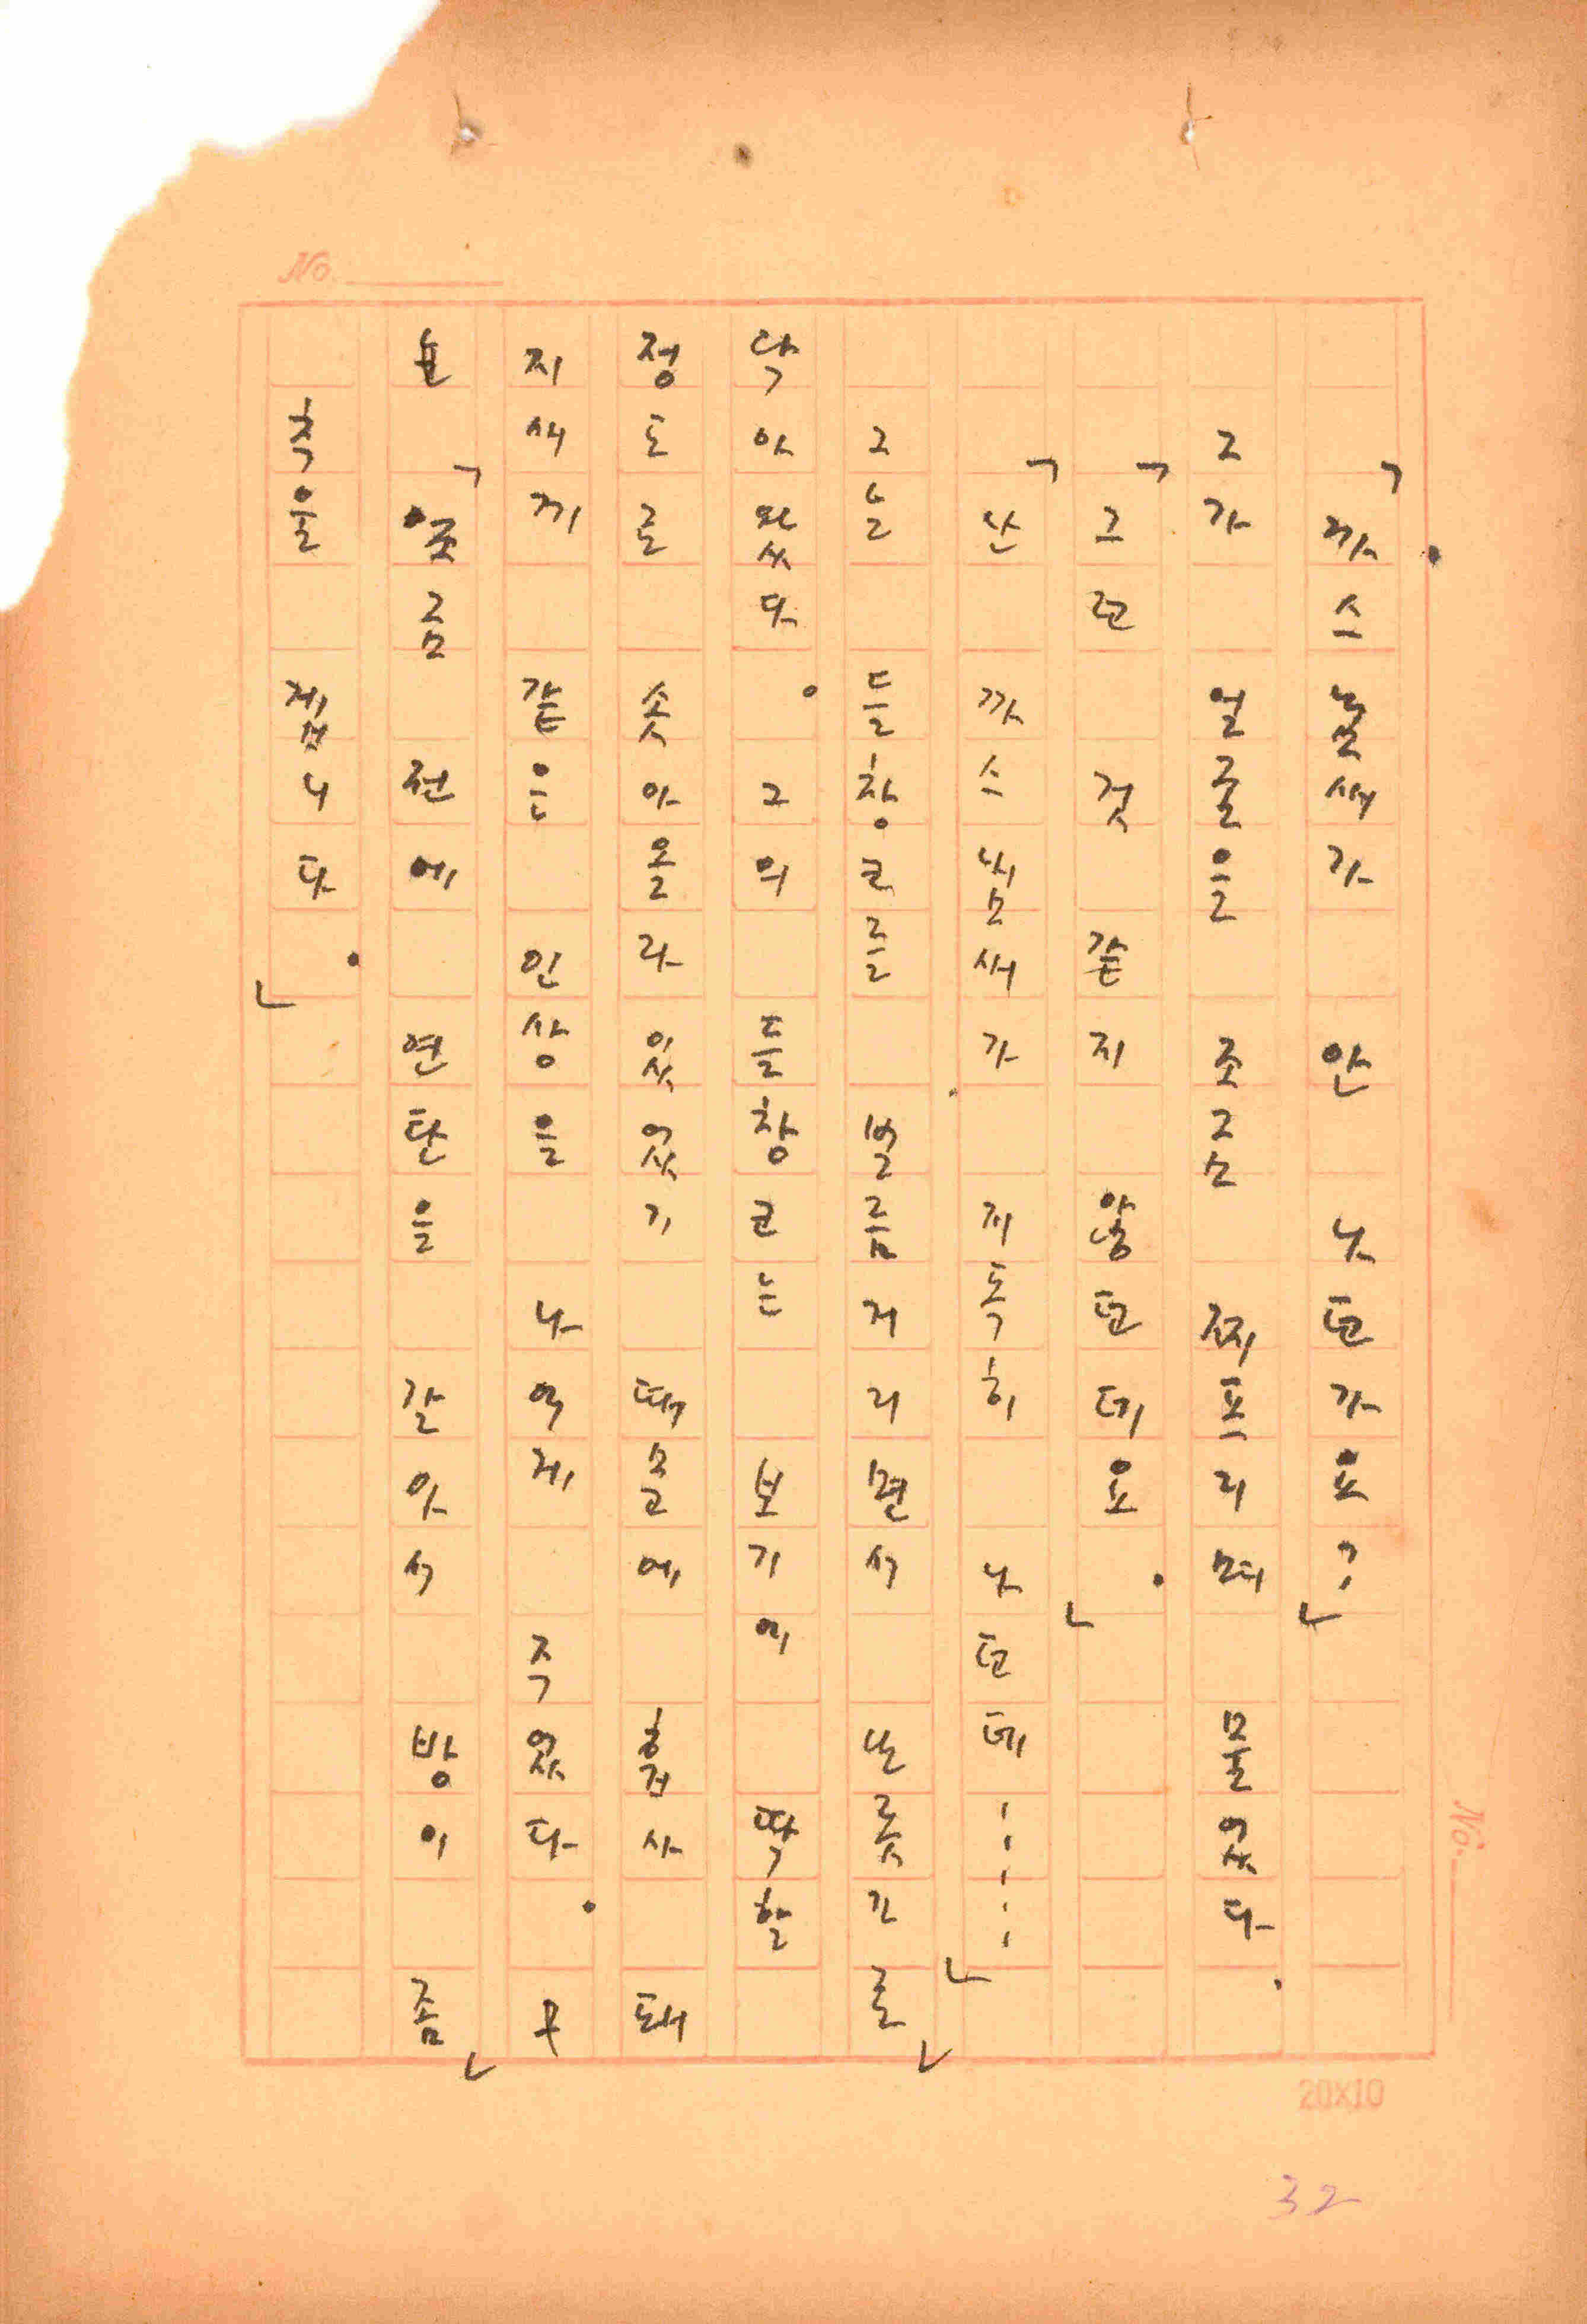 「까스 냄새가 안 낫던가요?」
그가 얼굴을 조금 찌프리며 물었다.
「그런 것 같지 않던데요.」
「난 까스 냄새가 지독히 낫던데……」
그는 들창코를 벌름거리면서 난롯가로
닥아왔다. 그의 들창코는 보기에 딱할
정도로 솟아올라 있었기 때문에 흡사 돼
지새끼 같은 인상을 나에게 주었다.
「조금 전에 연탄을 갈아서 방이 좀
추울 겝니다.」
No.
No.
20X10
32